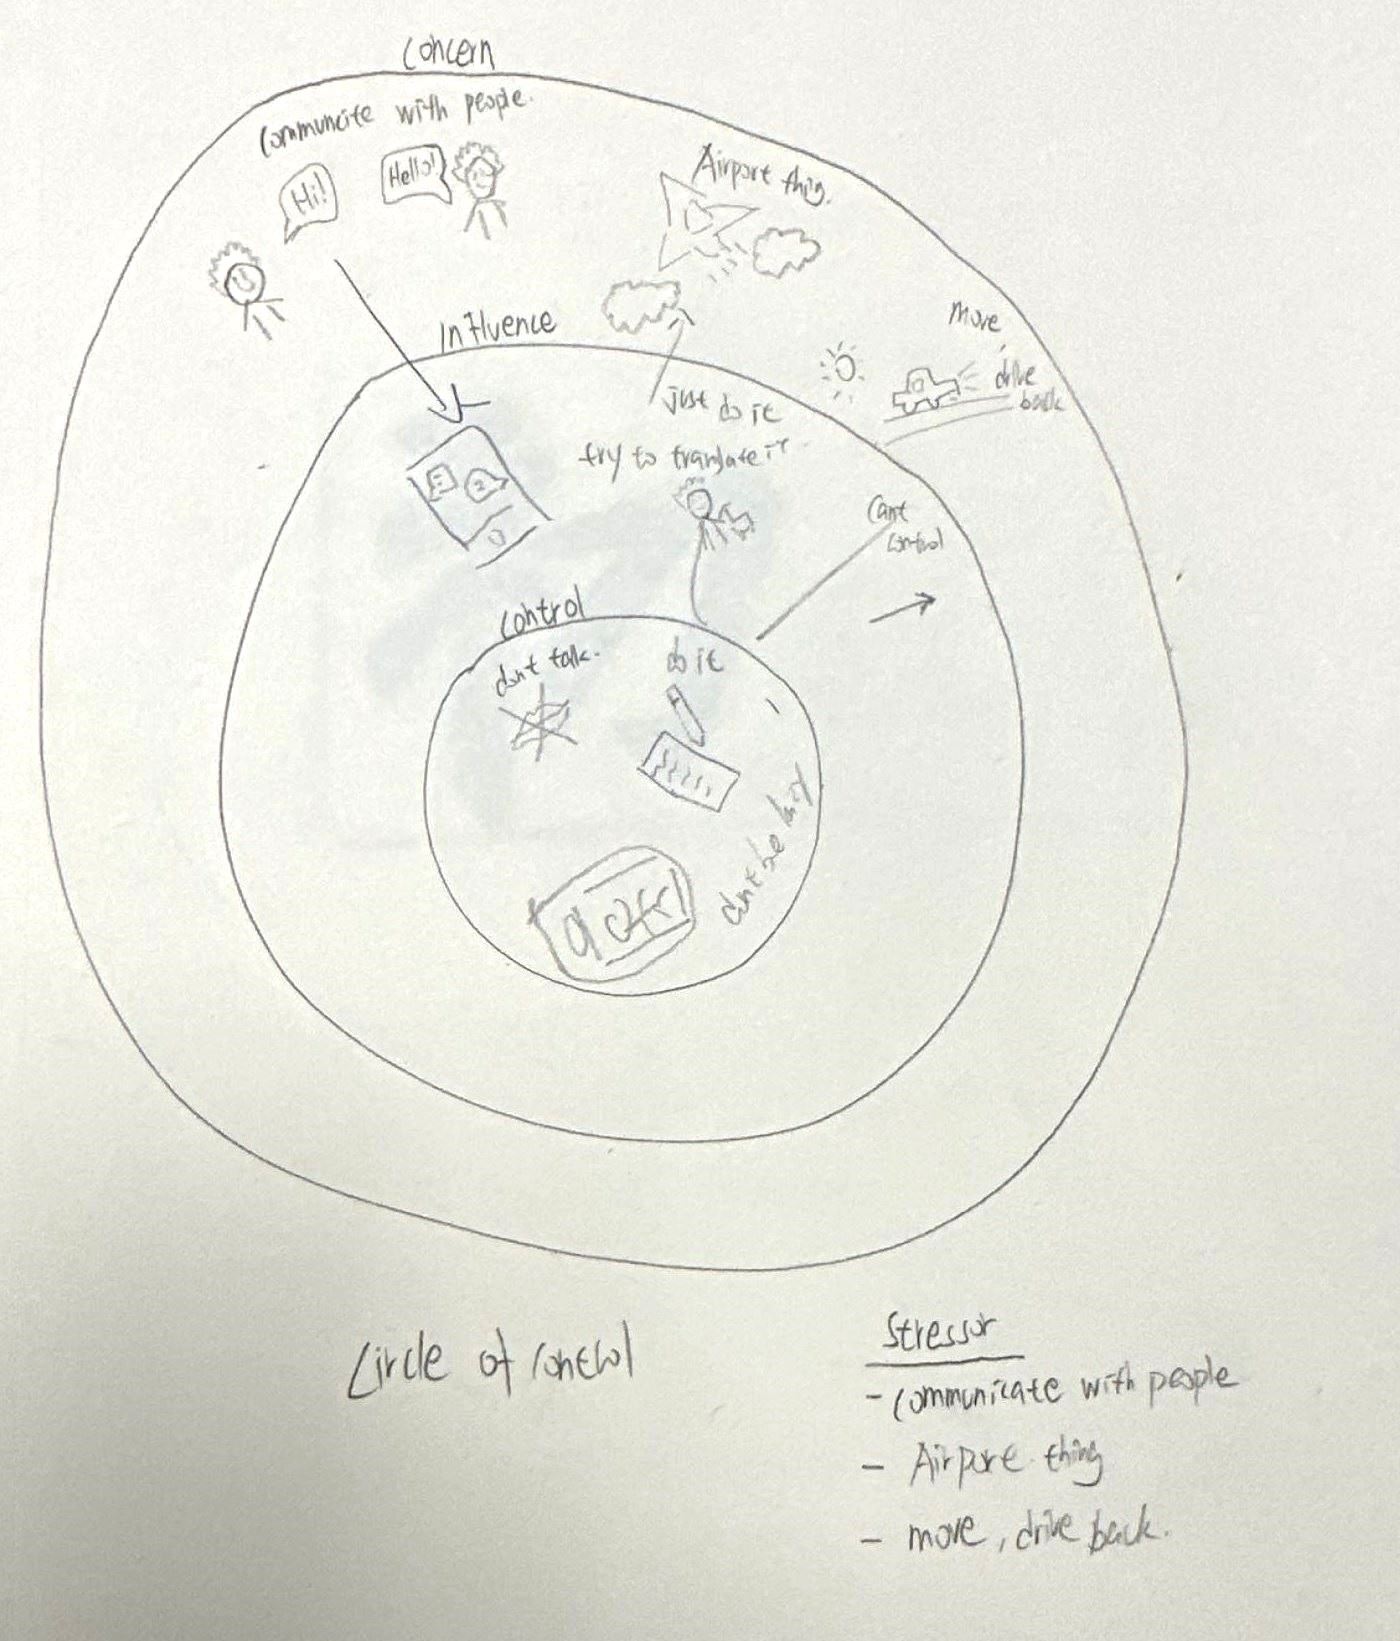 Concern
communcite with people.
Hi!
Hello!
Airport thing.
move,
drive
back
Influence
just do it
try to translate it
Cant
control
Control
dont talk.
do it
dont be lazy
Circle of control
Stressor
- communicate with people
- Airport thing
- move, drive back.